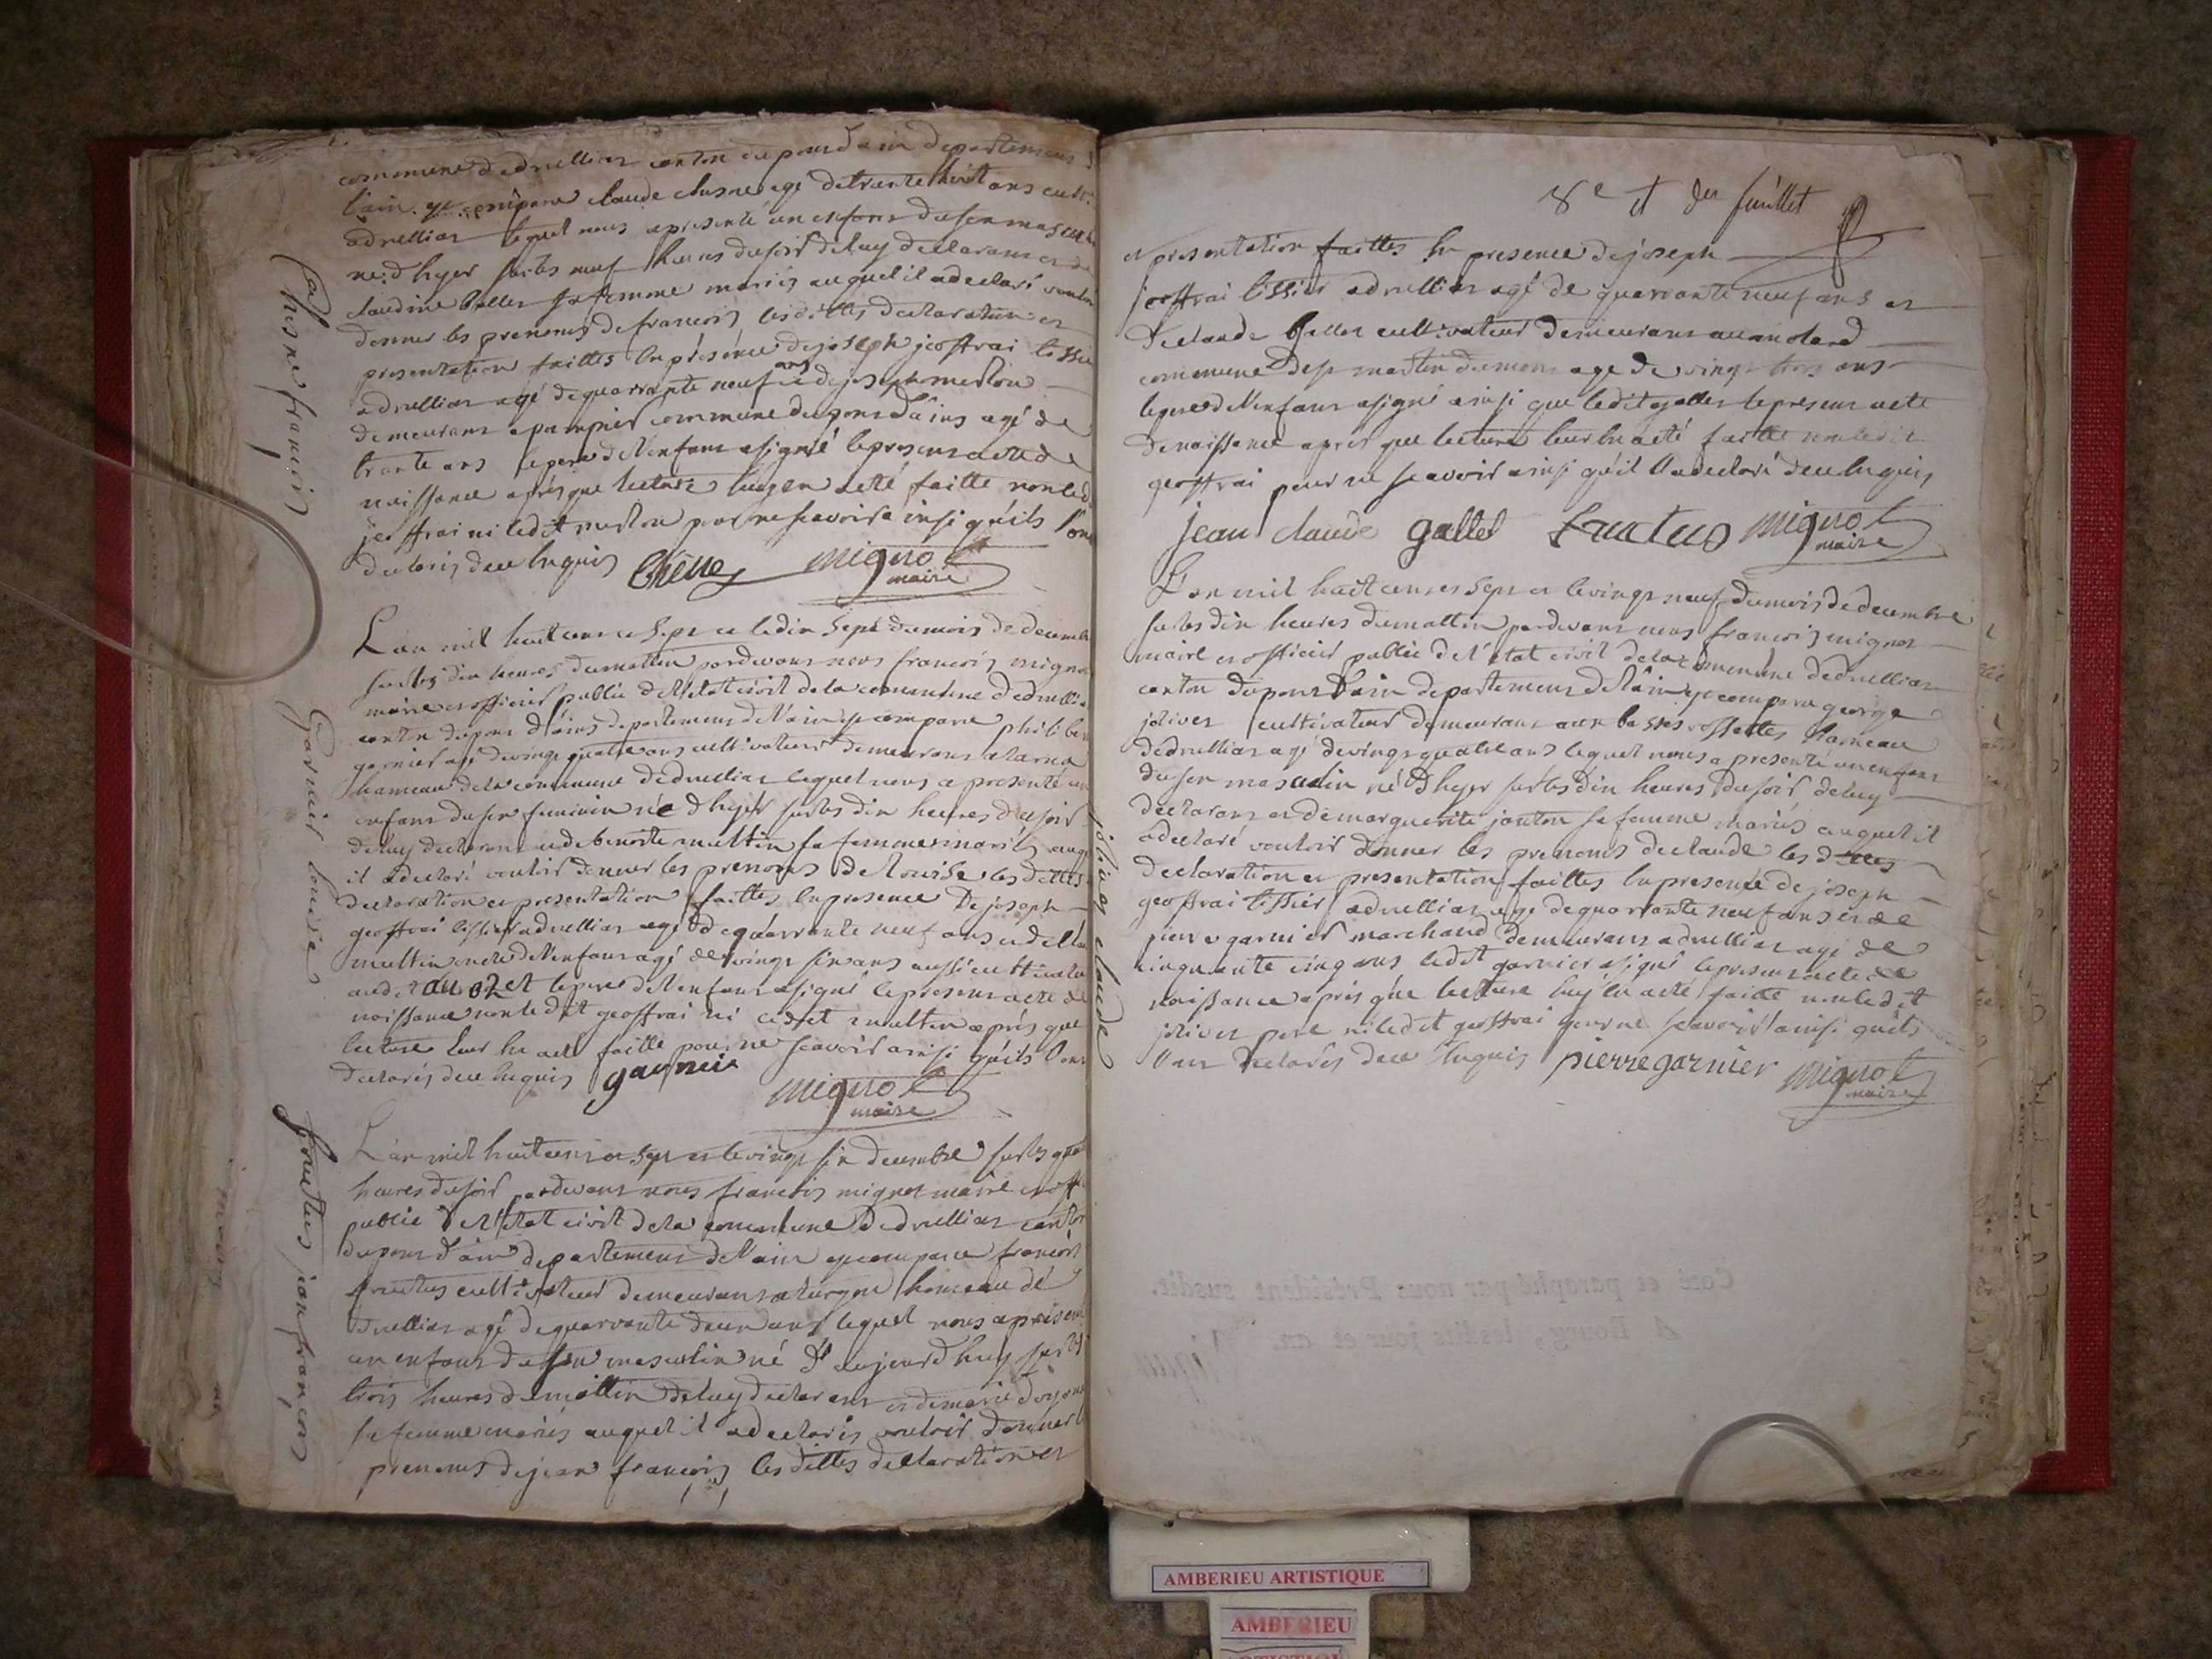 commune de druillias canton du pons d'ain departemens
l'ain ye compare claude chesne agé de trante huit ans cult.
a druillias lequel nous a presenté un enfans du sex mascul
né d'hyer sur les neuf heures du soir de luy declarans et de
claudine gallet sa femme mariés auquel il a declaré vouloir
donner les prenoms de francois, les dittes declaration et
presentation faittes en présence de joseph jeoffrai tissier
a druillias agé de quarrante neuf ans et de joseph merlou
demeurans a pampier commune du pons d'ains agé de
trante ans le pere de l'enfans a signé le presens acte de
naissance après que lecture luy en a eté faitte non led
jeoffrai ni ledit merlou pour ne scavoir ainsi qu'ils l'on
declarés de ce enquis Chene mignot
maire
chesne francois
L'an mil huit cens et sept et le dix sept du mois de decembre
sur les dix heures du mattin pardevans nous francois mignot
maire et officier public de l'etat civil de la commune de druillias
canton du pons d'ains departemens de l'ain ye compare philibert
garnier agé de vingt quatre ans cultivateur demeurans a
hameau de la commune de druillias lequel nous a presenté un
enfans du sex feminin née d'hyer sur les dix heures du soir
de luy declarans et de benoite mullin sa femme mariés auquel
il a declaré vouloir donner les prenoms de Louise les dittes
declaration et presentation faittes en presence de joseph
geoffrai tissier a druillias agé de quarrante neuf ans et de
mullin oncle de l'enfans agé de vingt six ans aussi cultivateur
le pere de l'enfans a signé le presens acte de
naissance non ledit geoffrai ni ledit mullin après que
lecture leur en a eté faitte pour ne scavoir ainsi qu'ils l'ons
declarés de ce enquis garnier
mignot
maire
Garnier Louise
L'an mil huit cens et sept et le vingt six decembre sur les quatre
heures du soir pardevans nous francois mignot maire et off
public de l'etat civil de la commune de druillias canton
du pons d'ain departemens de l'ain ye compare francois
fructus cultivateur demeurans a turgon hameau de
druillias agé de quarrante deux ans lequel nous a presenté
un enfans du sex masculin né d'aujourd'huy sur les
trois heures du mattin de luy declarans et de marie
sa femme mariés auquel il a declarés vouloir donner
prenoms de jean francois les dittes declaration et
fructus jean francois
8e et der fuillet
et presentation faittes en presence de joseph
jeoffrai tissier a druillias agé de quarrante neuf ans et
de claude gallet cultivateur demeurans au molard
commune de st martin du mons agé de vingt trois ans
le pere de l'enfans a signé ainsi que ledit gallet le presens acte
de naissance après que lecture leur en a eté faitte non ledit
geoffrai pour ne scavoir ainsi qu'il l'a declaré de ce enquis
jean claude gallet fructus mignot
maire
L'an mil huit cens et sept et le vingt neuf du mois de decembre
sur les dix heures du mattin pardevans nous francois mignot
maire et officier public de l'etat civil de la commune de druillias
canton du pons d'ain departemens de l'ain ye compare george
jolivet cultivateur demeurans aux basses rossettes hameau
de druillias agé de vingt quatre ans lequel nous a presenté un enfans
du sex masculin né d'hyer sur les dix heures du soir de luy
declarans et de marguerite janton sa femme mariés auquel il
a declaré vouloir donner les prenoms de claude les dittes
declaration et presentation faittes en presence de joseph
geoffrai tissier a druillias agé de quarrante neuf ans et de
pierre garnier marchand demeurans a druillias agé de
cinquante cinq ans ledit garnier a signé le presens acte de
naissance après que lecture luy en a eté faitte non ledit
jolivet pere ni ledit geoffrai pour ne scavoir ainsi qu'ils
l'ons declarés de ce enquis pierre garnier mignot
maire
jolivet claude
Coté et paraphé par nous Président susdit.
A Bourg, lesdits jour et an.
AMBERIEU ARTISTIQUE
AMBERIEU
ARTISTIQUE